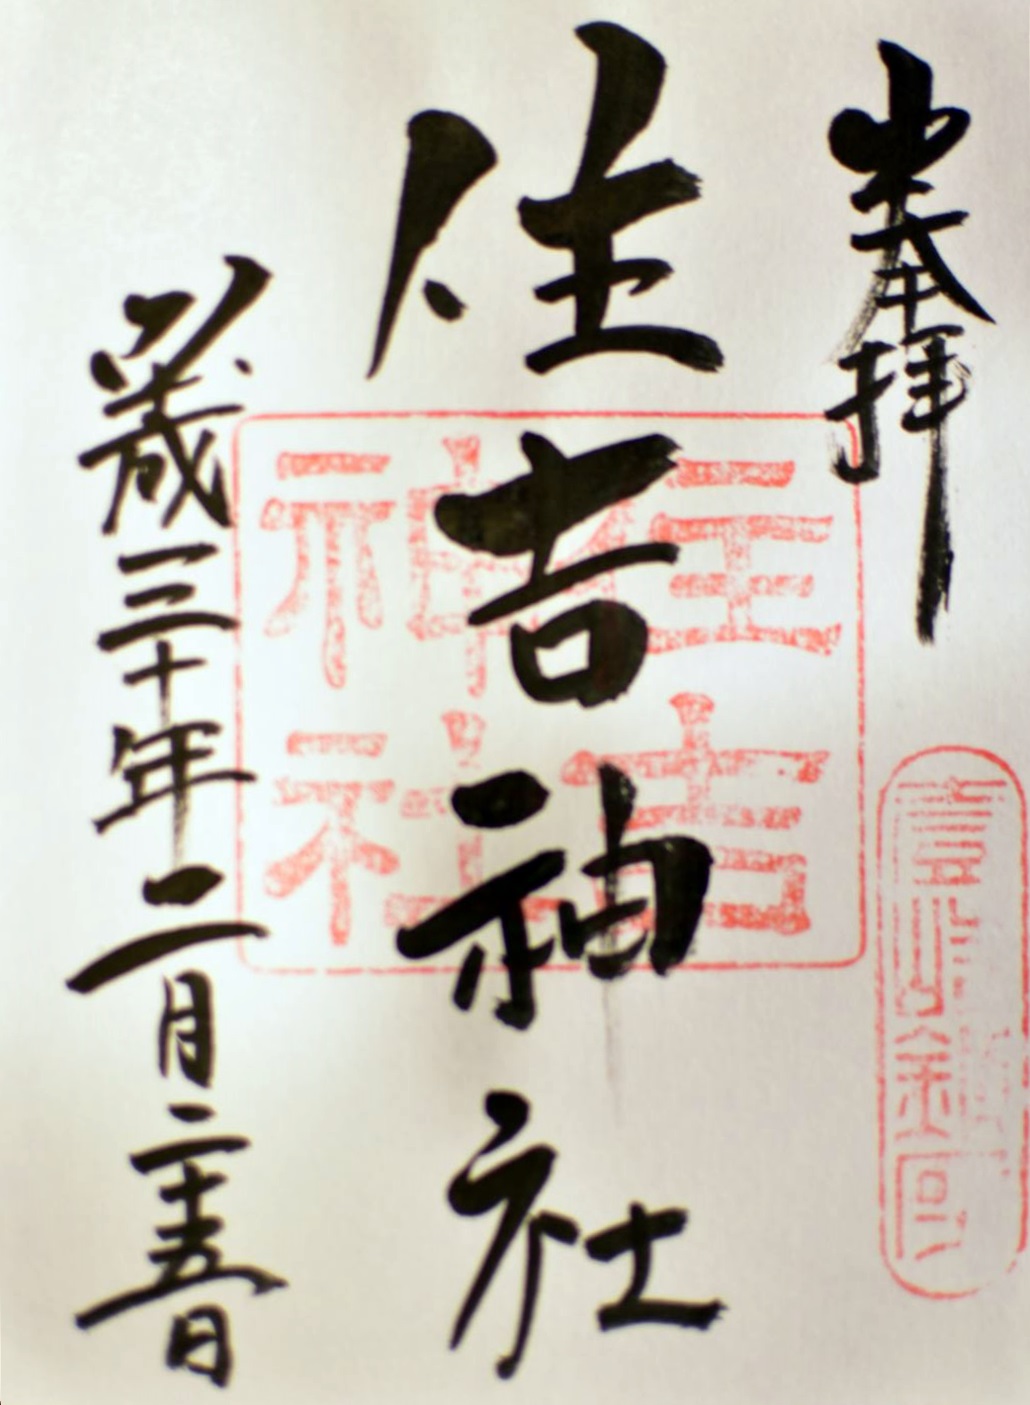 奉拝
住吉神社
住吉神社
平成三十年二月二十五日